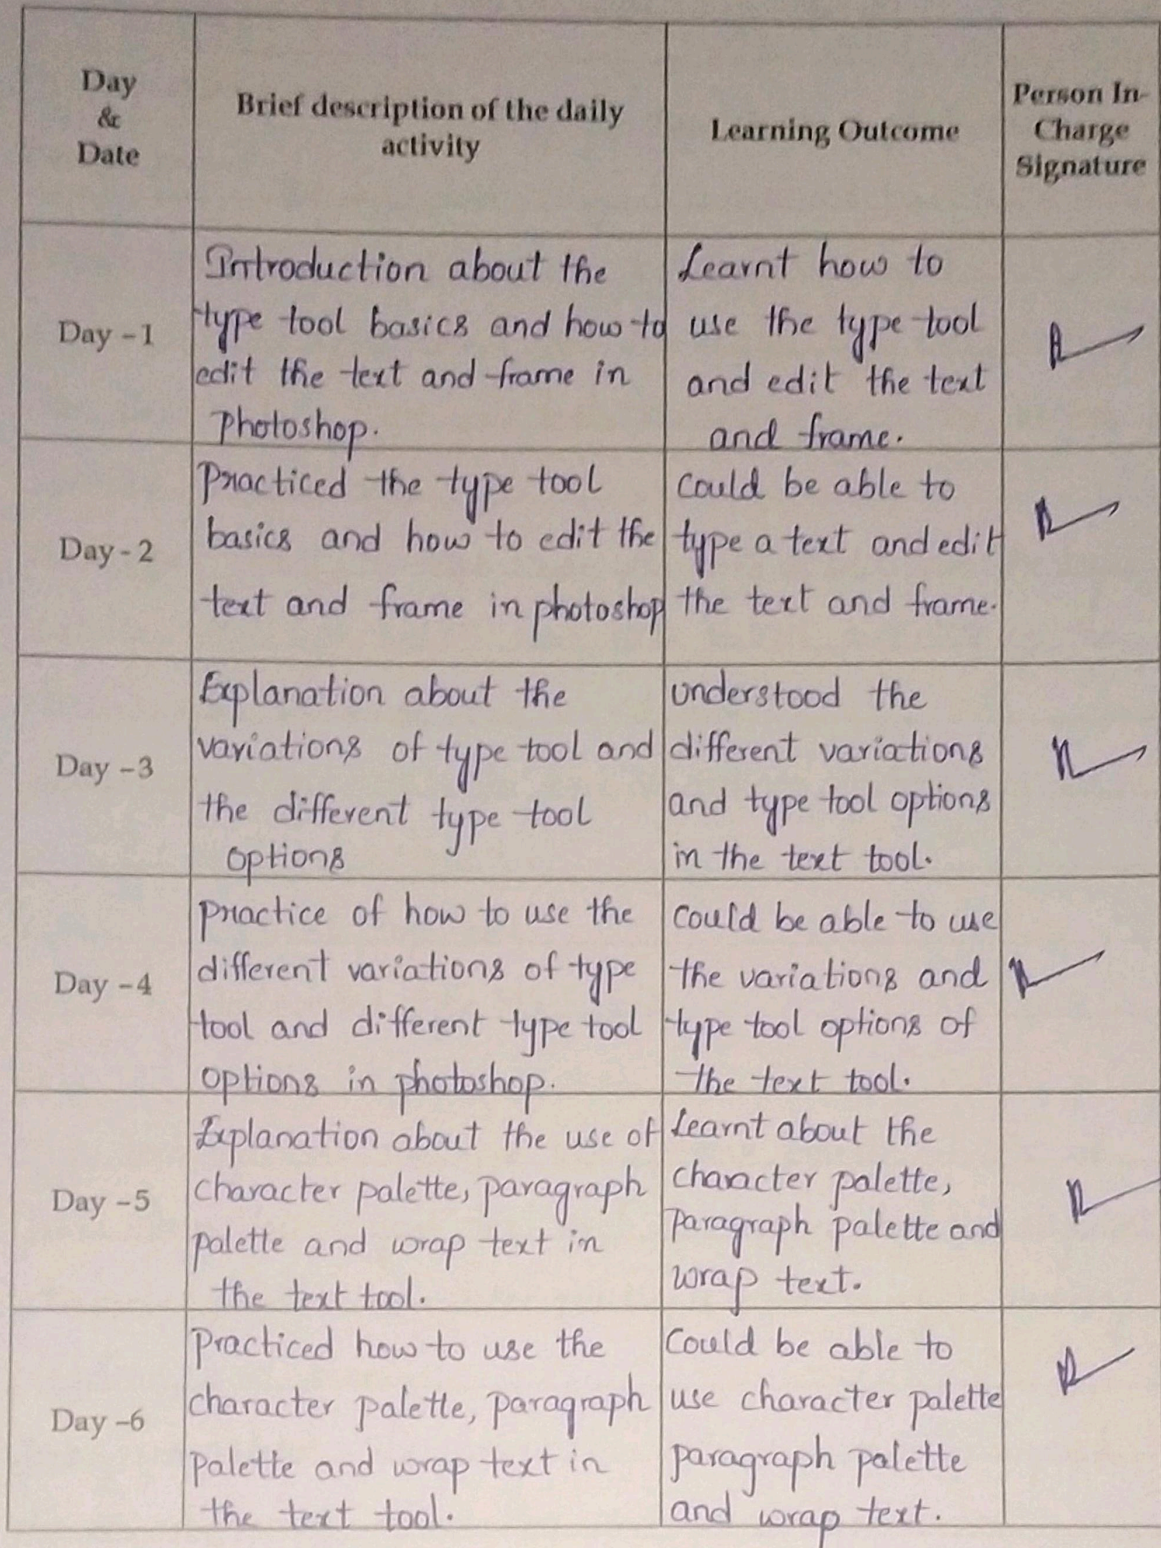 Day
&
Date
Brief description of the daily
activity
Learning Outcome
Person In-
Charge
Signature
Day - 1
Introduction about the
type tool basics and how to
edit the text and frame in
Photoshop.
Learnt how to
use the type tool
and edit the text
and frame.
Day - 2
Practiced the type tool
basics and how to edit the
text and frame in photoshop
Could be able to
type a text and edit
the text and frame.
Day - 3
Explanation about the
variations of type tool and
the different type tool
options
understood the
different variations
and type tool options
in the text tool.
Day - 4
practice of how to use the
different variations of type
tool and different type tool
options in photoshop.
Could be able to use
the variations and
type tool options of
the text tool.
Day - 5
Explanation about the use of
character palette, paragraph
palette and wrap text in
the text tool.
Learnt about the
character palette,
paragraph palette and
wrap text.
Day - 6
Practiced how to use the
character palette, paragraph
palette and wrap text in
the text tool.
Could be able to
use character palette
paragraph palette
and wrap text.